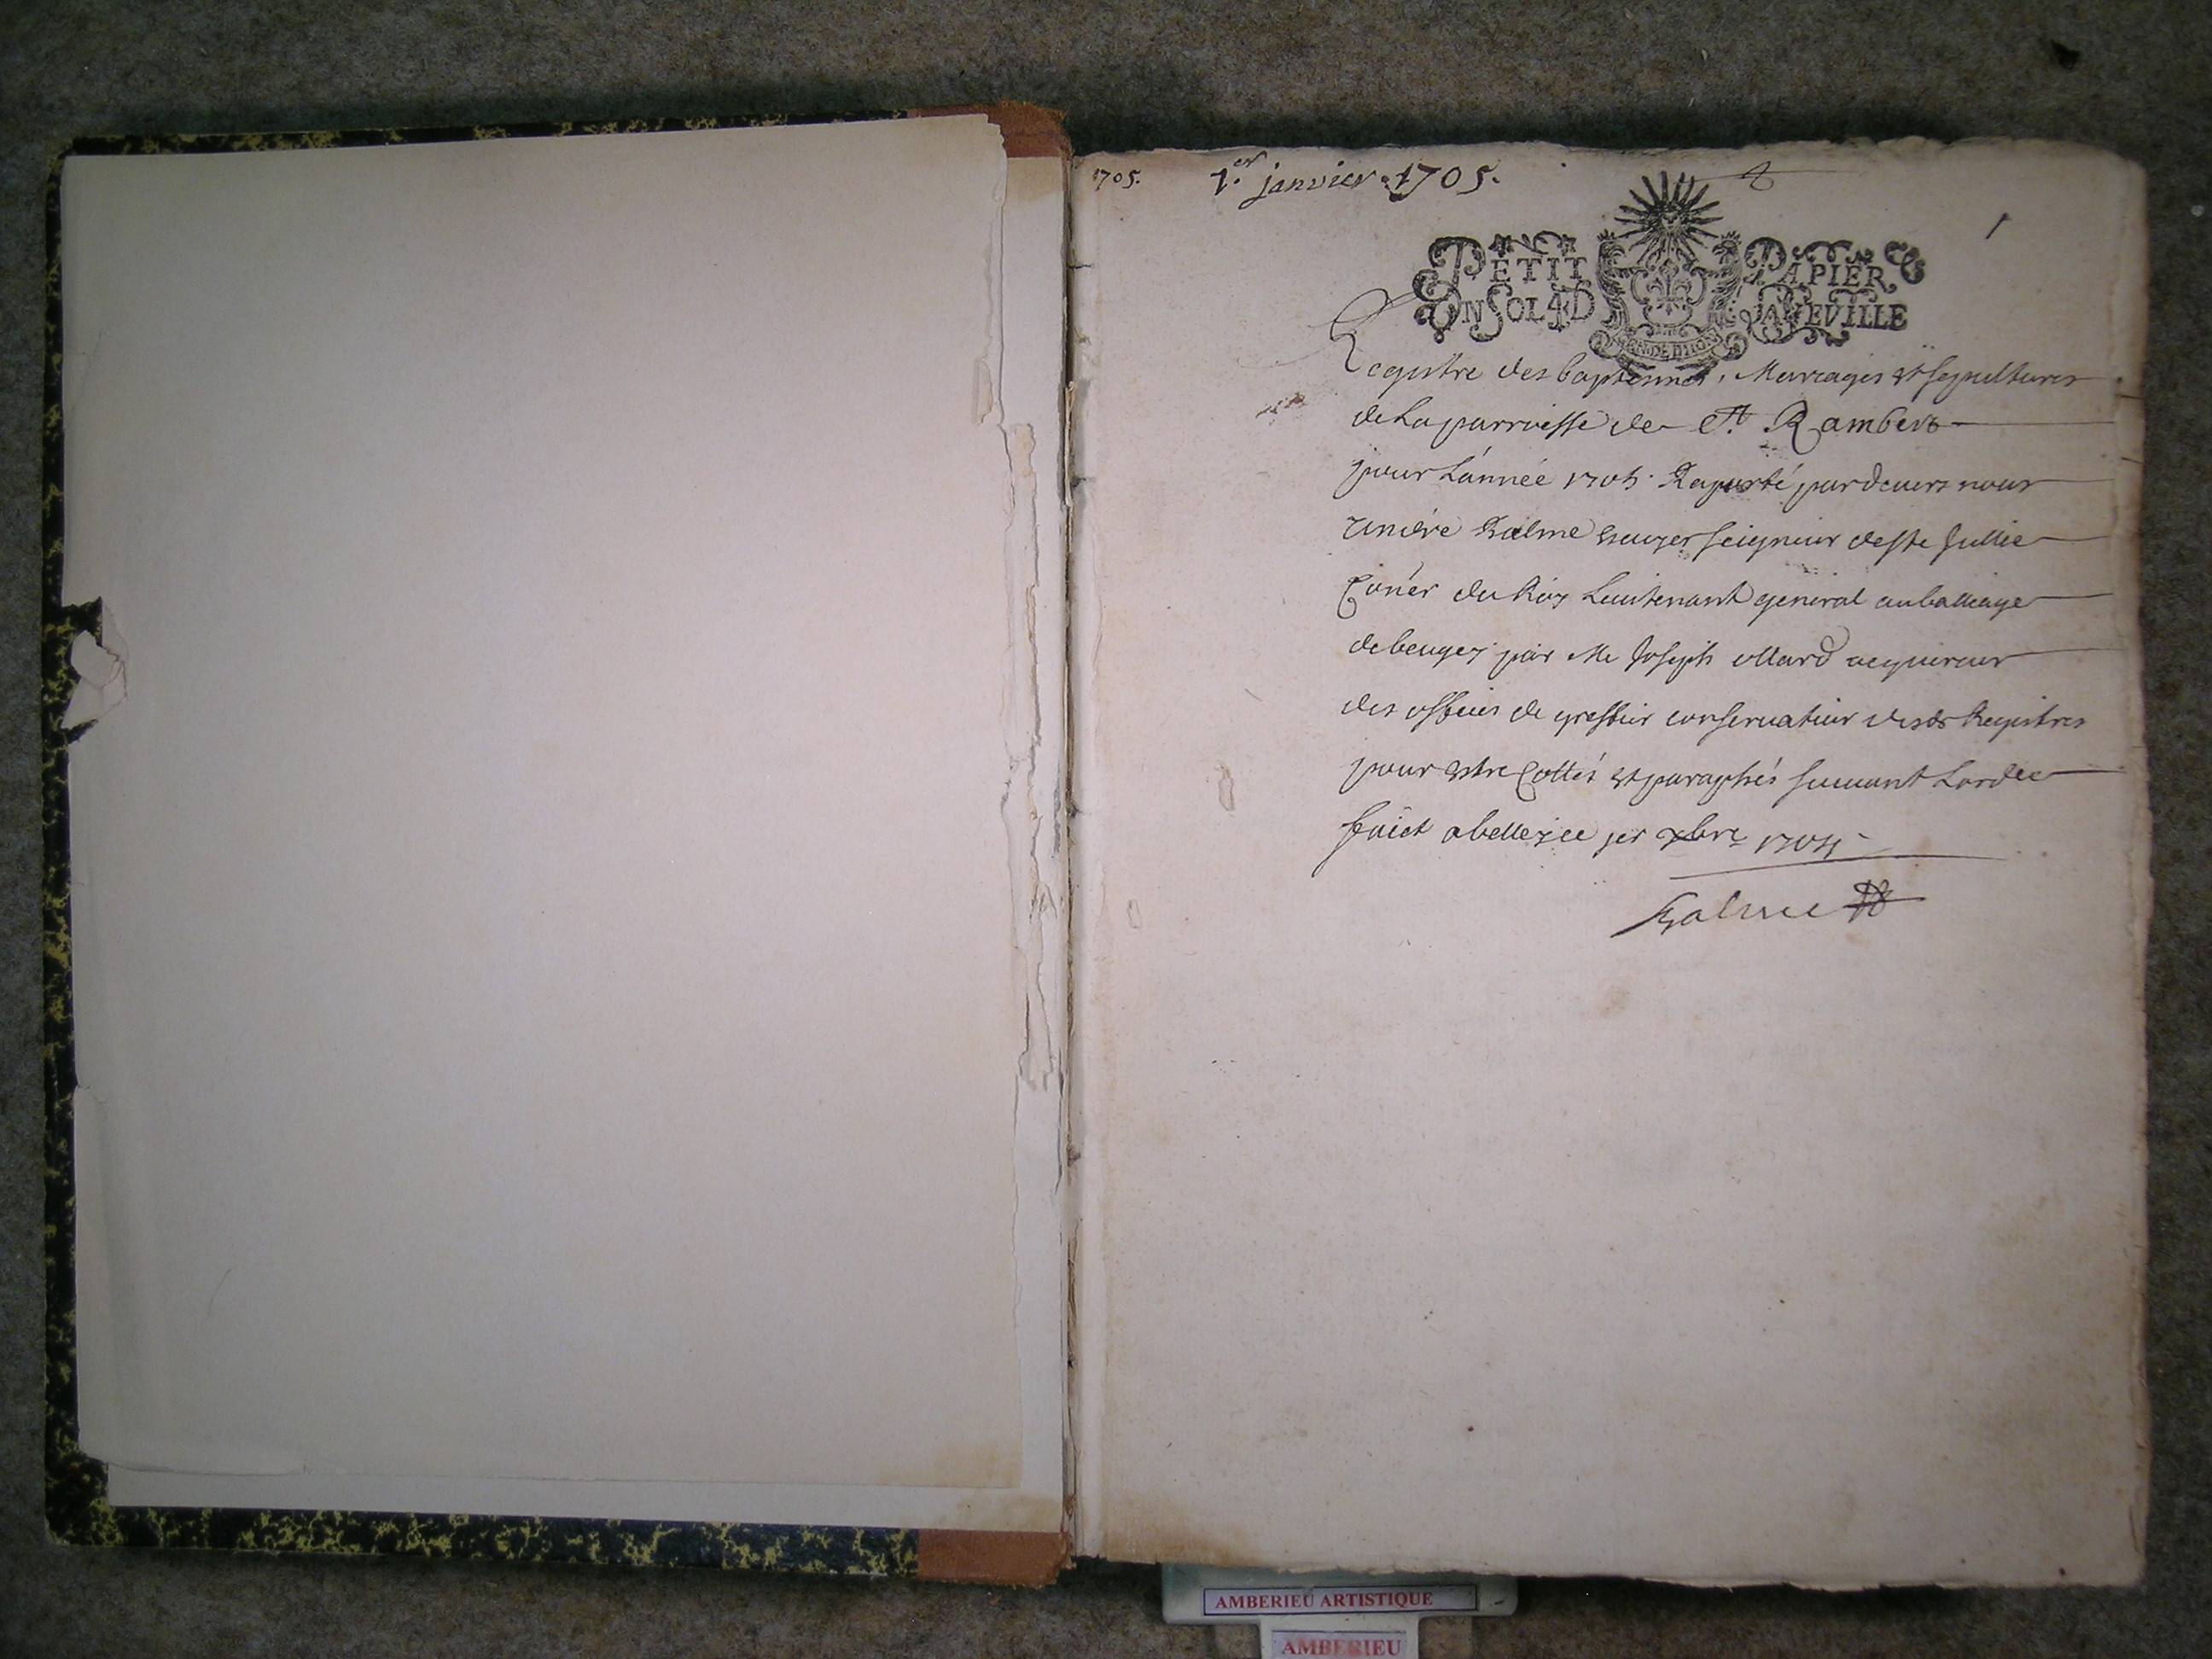 1705.
1.er janvier 1705.
1
PETIT PAPIER
UN SOL 4 D LA FEUILLE
GEN DE DIION
Registre des baptesmes, Mariages et sepultures
de La parroisse de St Rambert
pour Lánnée 1705 Raporté pardevers nous
andre Balme escuyer seigneur de Ste Jullie
Coner du Roy Lieutenant general au balliage
de beugey par Me Joseph ollard acquereur
des offices de greffier conservateur desds Registres
pour estre Cottés et paraphés suivant Lorde
faict a belley ce
xbre 1704
Balme
AMBERIEU ARTISTIQUE
AMBERIEU